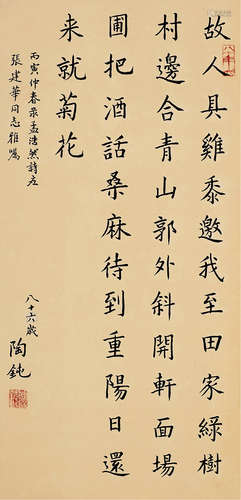 故人具雞黍邀我至田家綠樹
村邊合青山郭外斜開軒面場
圃把酒話桑麻待到重陽日還
来就菊花
丙寅仲春录孟浩然詩应
張建華同志雅嘱
八十六歲
陶鈍